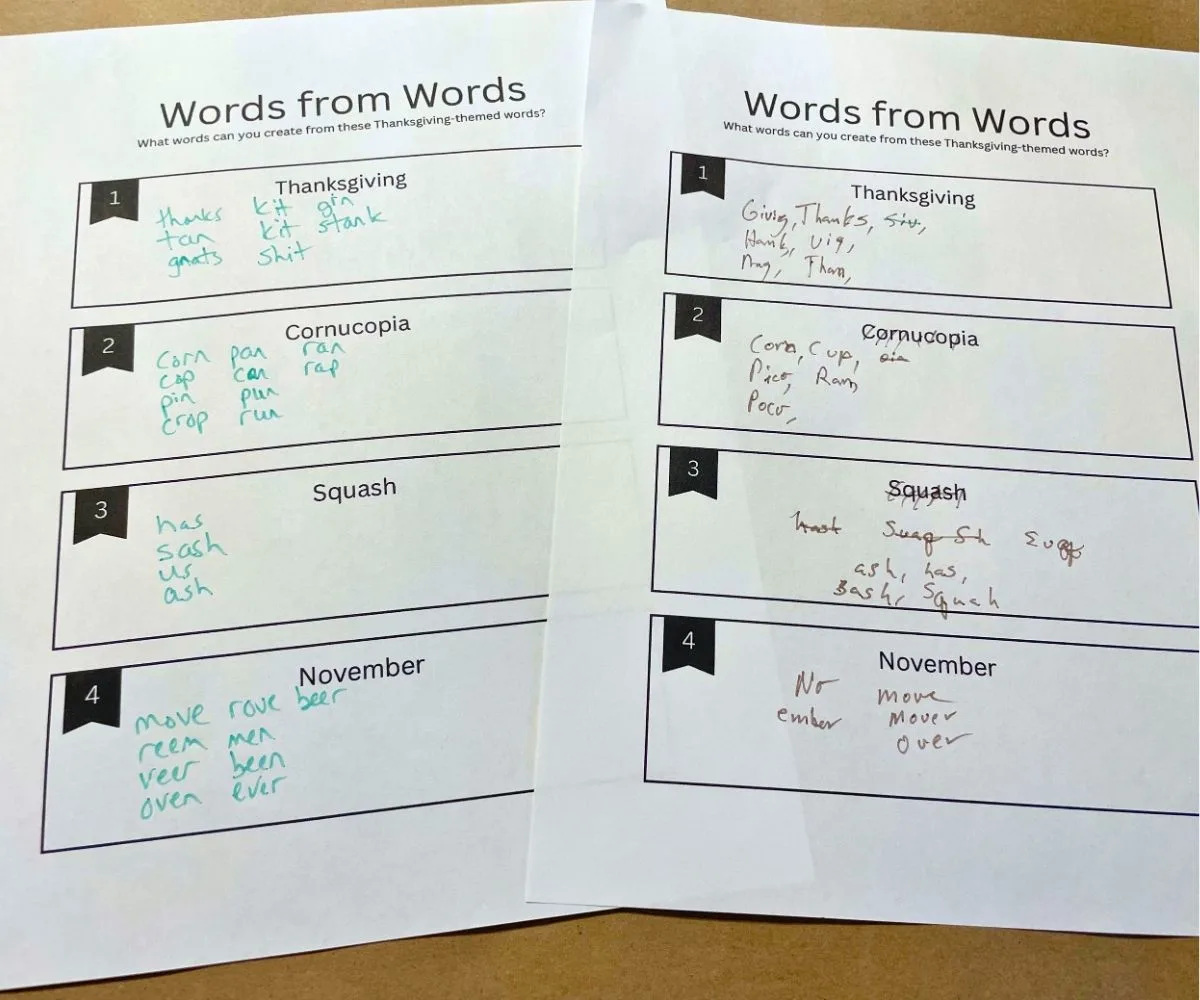 Words from Words
What words can you create from these Thanksgiving-themed words?
1
Thanksgiving
thanks kit gin
tan kit stank
gnats shit
2
Cornucopia
Corn pan ran
cop can rap
pin pun
crop run
3
Squash
has
sash
us
ash
4
November
move rove beer
reem men
veer been
oven ever
Words from Words
What words can you create from these Thanksgiving-themed words?
1
Thanksgiving
Giving, Thanks,
Hank, Vig,
Nag, Than,
2
Cornucopia
Corn, Cup,
Pico, Ran,
Poco,
3
Squash
ash, has,
Sash, Squah
4
November
No move
ember Mover
over